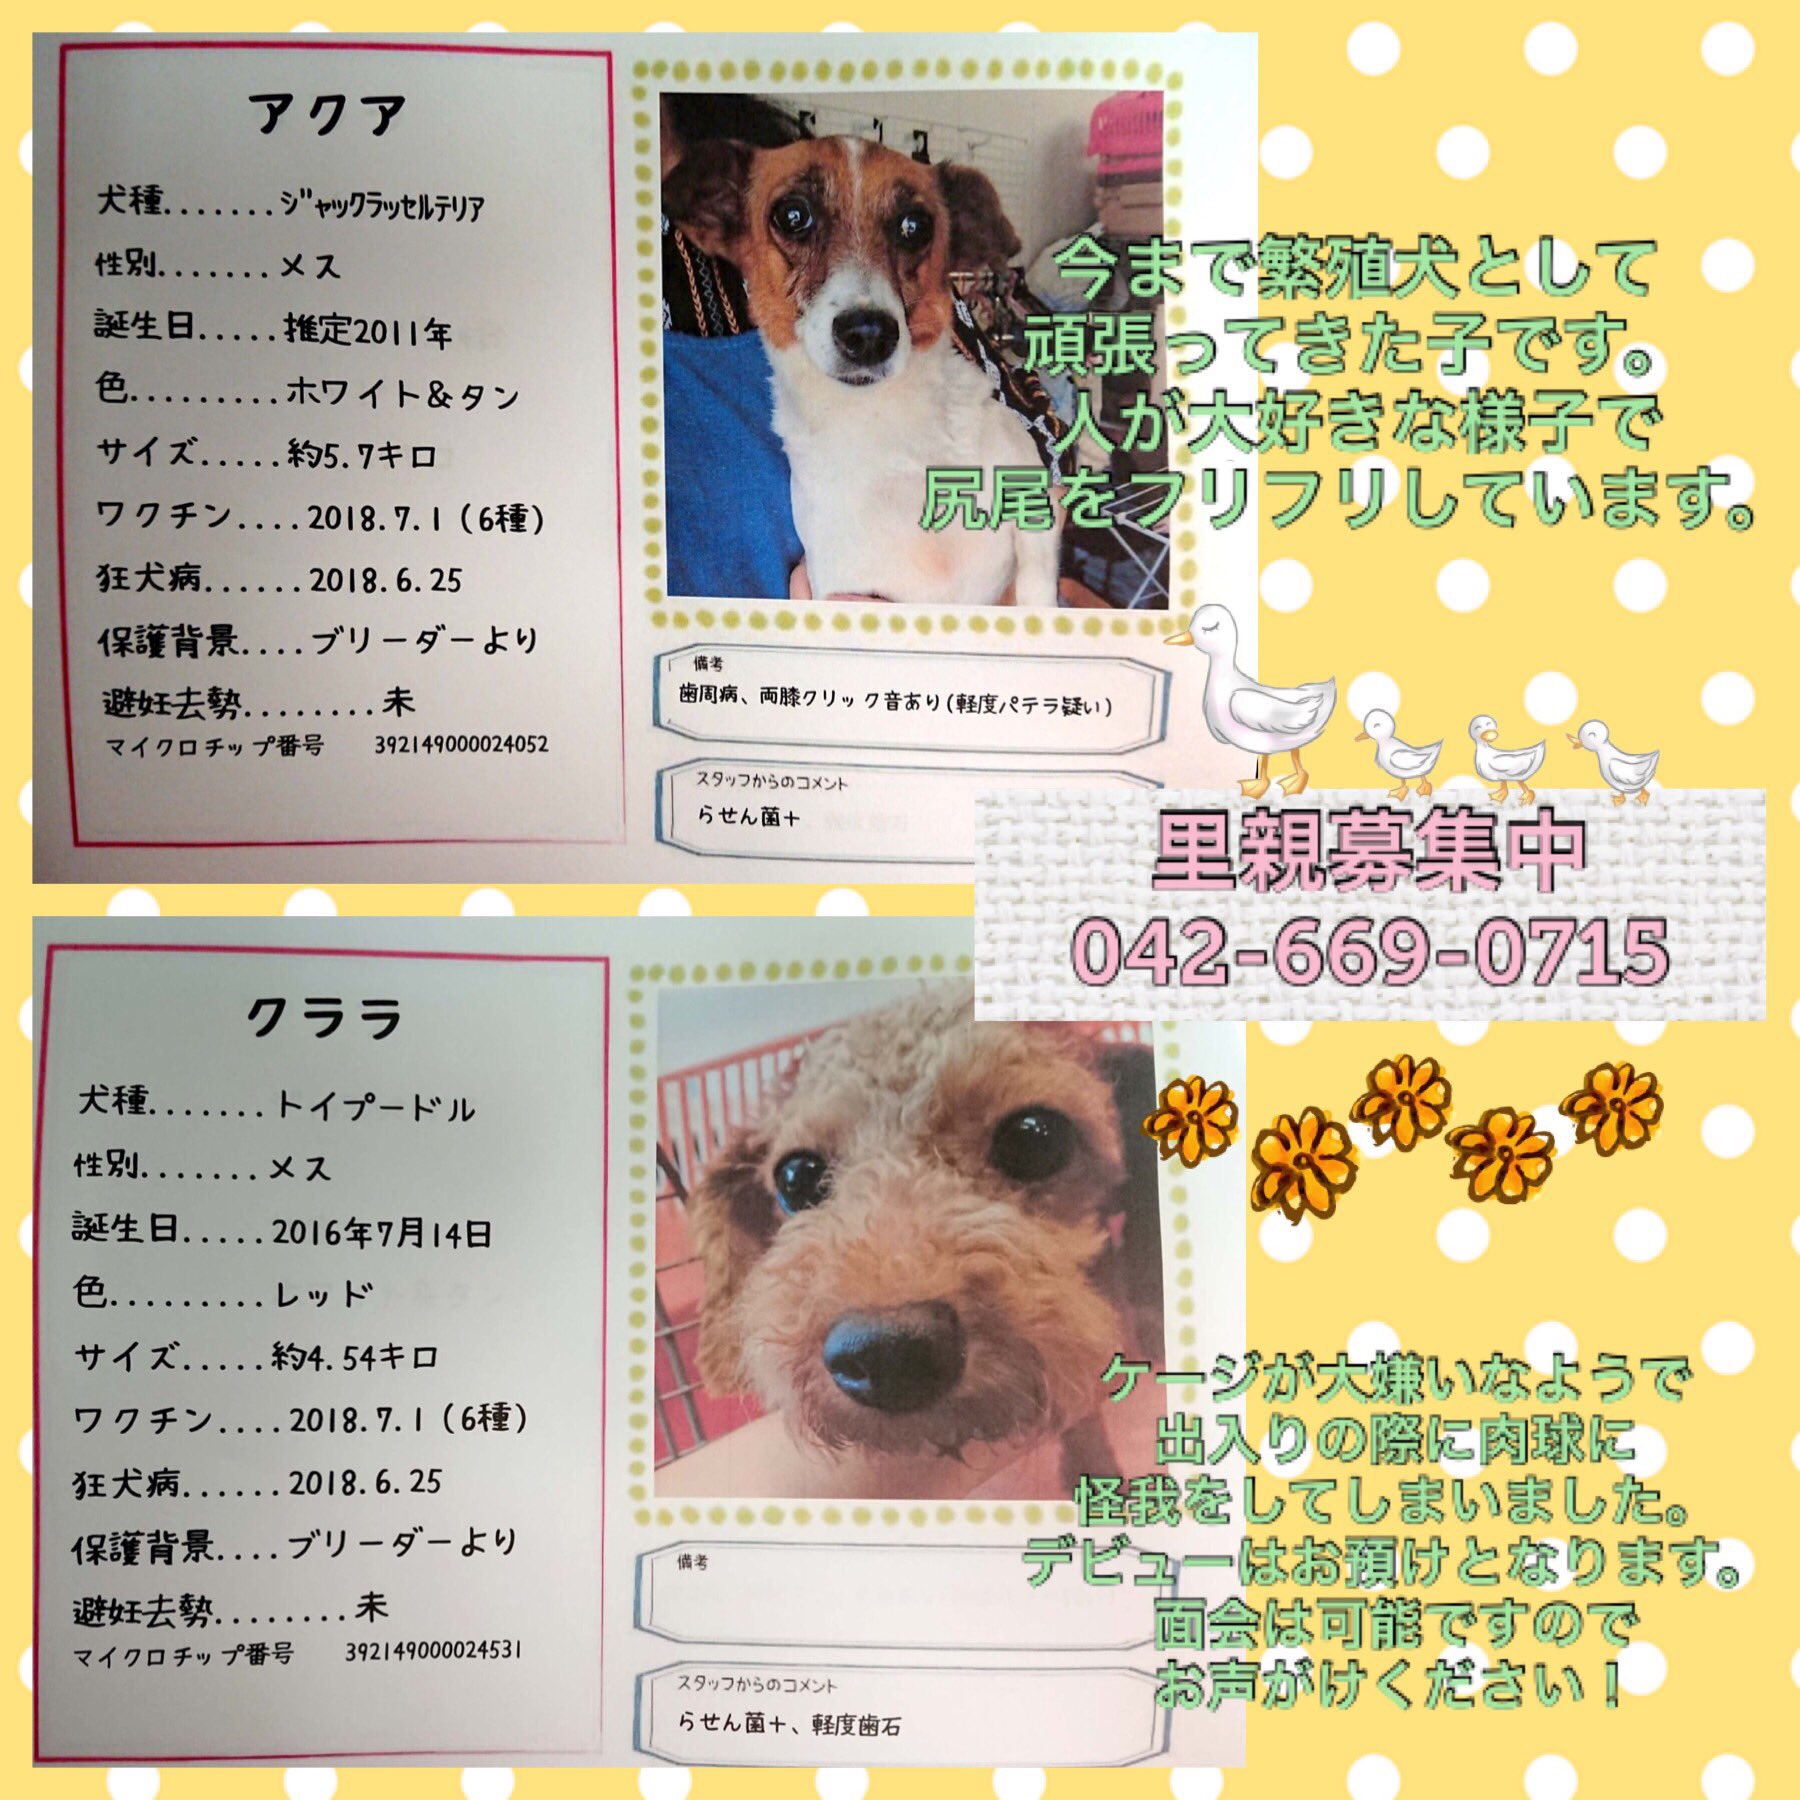 アクア
犬種.......ジャックラッセルテリア
性別.......メス
誕生日.....推定2011年
色.........ホワイト&タン
サイズ.....約5.7キロ
ワクチン....2018.7.1(6種)
狂犬病......2018.6.25
保護背景....ブリーダーより
避妊去勢........未
マイクロチップ番号 392149000024052
備考
歯周病、両膝クリック音あり(軽度パテラ疑い)
スタッフからのコメント
らせん菌+
今まで繁殖犬として
頑張ってきた子です。
人が大好きな様子で
尻尾をフリフリしています。
里親募集中
042-669-0715
クララ
犬種.......トイプードル
性別.......メス
誕生日.....2016年7月14日
色.........レッド
サイズ.....約4.54キロ
ワクチン....2018.7.1(6種)
狂犬病......2018.6.25
保護背景....ブリーダーより
避妊去勢........未
マイクロチップ番号 392149000024531
備考
スタッフからのコメント
らせん菌+、軽度歯石
ケージが大嫌いなようで
出入りの際に肉球に
怪我をしてしまいました。
デビューはお預けとなります。
面会は可能ですので
お声がけください!